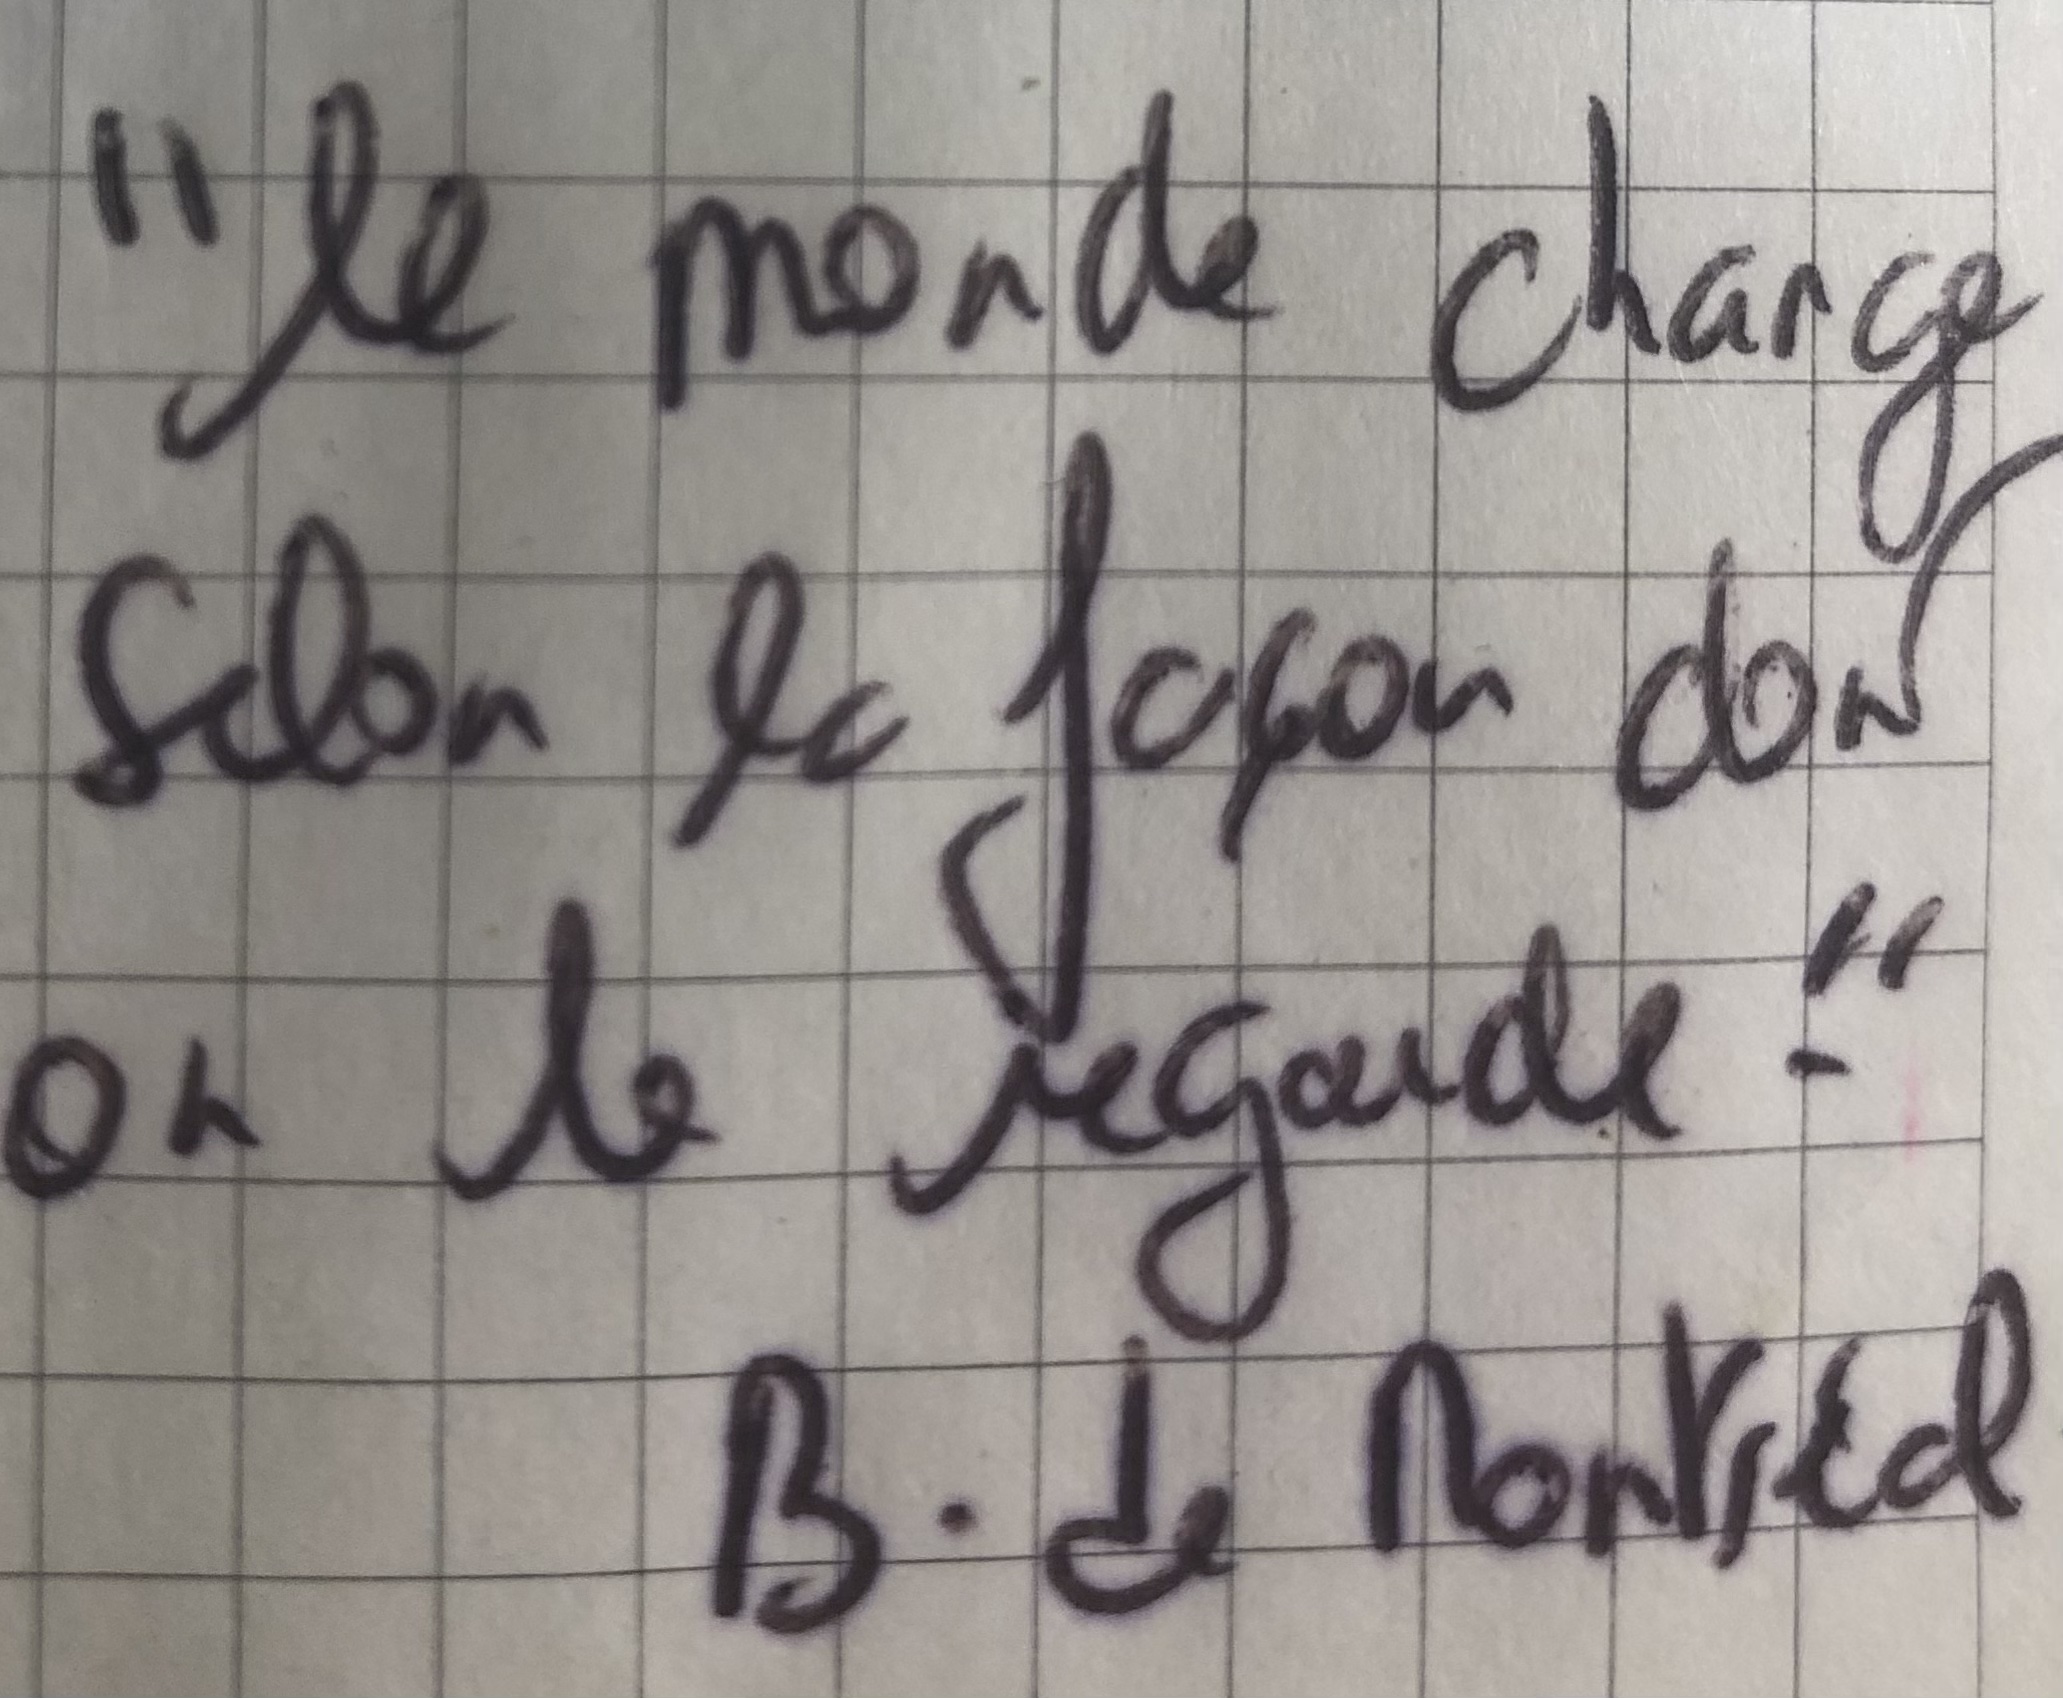 "le monde change
selon la façon dont
on le regarde."
B. de Montréal